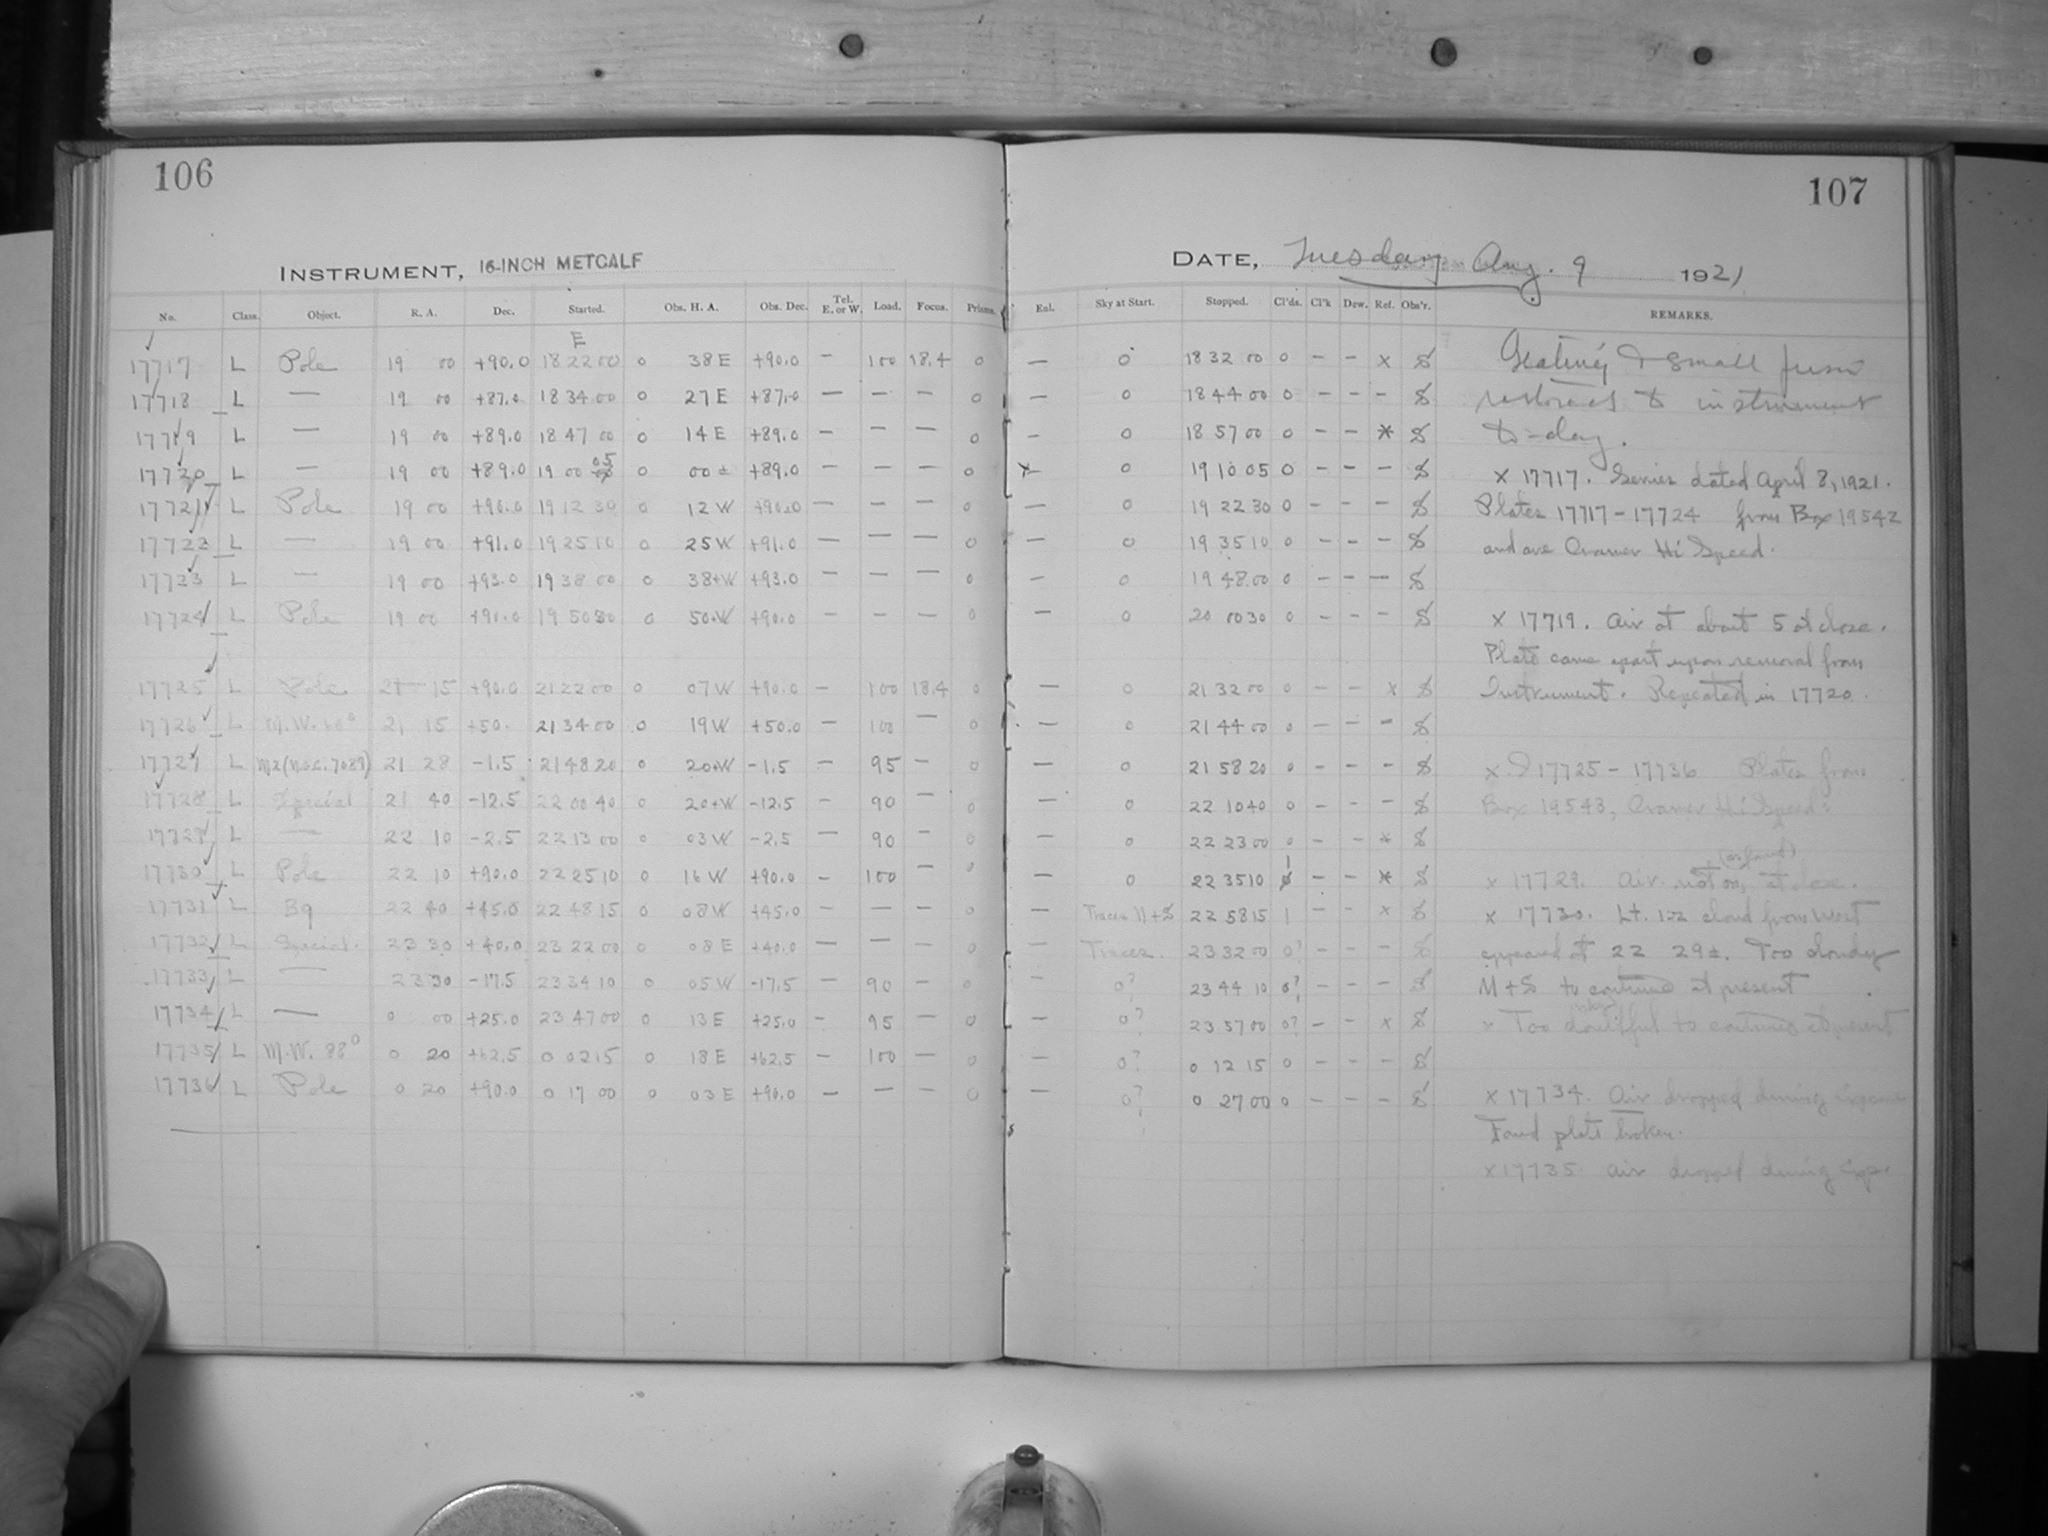 106
107
INSTRUMENT, 16-INCH METCALF
DATE, Tuesday Aug. 9 1921
No. Class. Object. R. A. Dec. Started. Obs. H. A. Obs. Dec. Tel. E. or W. Load. Focus. Prisms. Enl. Sky at Start. Stopped. Cl'ds. Cl'k Dew. Ref. Obs'r. REMARKS.
E
17717 L Pole 19 00 +90.0 18 22 00 0 38 E +90.0 – 100 18.4 0 – 0 18 32 00 0 – – x S
17718 L — 19 00 +87.0 18 34 00 0 27 E +87.0 – – – 0 – 0 18 44 00 0 – – – S
17719 L — 19 00 +89.0 18 47 00 0 14 E +89.0 – – – 0 – 0 18 57 00 0 – – x S
17720 L — 19 00 +89.0 19 00 05 0 00 ± +89.0 – – – 0 – 0 19 10 05 0 – – – S
17721 L Pole 19 00 +90.0 19 12 30 0 12 W +90.0 – – – 0 – 0 19 22 30 0 – – – S
17722 L — 19 00 +91.0 19 25 10 0 25 W +91.0 – – – 0 – 0 19 35 10 0 – – – S
17723 L — 19 00 +93.0 19 38 00 0 38+W +93.0 – – – 0 – 0 19 48 00 0 – – – S
17724 L Pole 19 00 +90.0 19 50 30 0 50+W +90.0 – – – 0 – 0 20 00 30 0 – – – S
17725 L Pole 21 15 +90.0 21 22 00 0 07 W +90.0 – 100 18.4 0 – 0 21 32 00 0 – – x S
17726 L M.W. 21 15 +50. 21 34 00 0 19 W +50.0 – 100 – 0 – 0 21 44 00 0 – – – S
17727 L M2 (N.G.C. 7089) 21 28 -1.5 21 48 20 0 20+W -1.5 – 95 – 0 – 0 21 58 20 0 – – – S
17728 L Special 21 40 -12.5 22 00 40 0 20+W -12.5 – 90 – 0 – 0 22 10 40 0 – – – S
17729 L — 22 10 -2.5 22 13 00 0 03 W -2.5 – 90 0 – 0 22 23 00 0 – – x S
17730 L Pole 22 10 +90.0 22 25 10 0 16 W +90.0 – 100 – 0 – 0 22 35 10 1 – – x S
17731 L B9 22 40 +45.0 22 48 15 0 08 W +45.0 – – – 0 – Traces N+S 22 58 15 1 – – x S
17732 L Special. 23 30 +40.0 23 22 00 0 08 E +40.0 – – – 0 – Traces. 23 32 00 0? – – – S
17733 L — 23 30 -17.5 23 34 10 0 05 W -17.5 – 90 – 0 – 0? 23 44 10 0? – – – S
17734 L — 0 00 +25.0 23 47 00 0 13 E +25.0 – 95 – 0 – 0? 23 57 00 0? – – x S
17735 L M.W. 88° 0 20 +62.5 0 02 15 0 18 E +62.5 – 100 – 0 – 0? 0 12 15 0 – – – S
17736 L Pole 0 20 +90.0 0 17 00 0 03 E +90.0 – – – 0 – 0? 0 27 00 0 – – – S
restored to instrument
to-day.
x 17717. Series dated April 8, 1921.
Plates 17717 – 17724 from Box 19542
and are Cramer Hi Speed.
x 17719. Air at about 5 at close.
Plate came apart upon removal from
Instrument. Repeated in 17720.
17725 – 17736 Plates from
Box 19543, Cramer Hi Speed.
x 17729. Air not on, at close.
x 17730. Lt. 1-2 cloud from West
appeared at 22 29±. Too cloudy
N + S to continue at present
x Too doubtful to continue at present
x 17734. Air dropped during exposure
Found plate broken.
x 17735 Air dropped during exp.